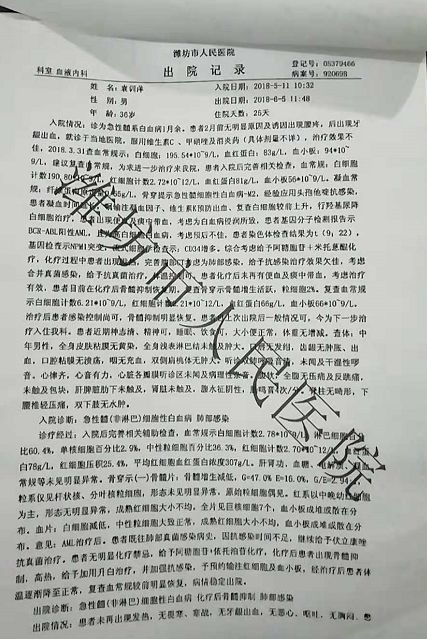 潍坊市人民医院
登记号: 08379466
科室 血液内科
出院记录
病案号: 920698
姓名:
入院日期: 2018-5-11 10:32
性别: 男
出院日期: 2018-6-5 11:48
年龄: 36岁
住院天数: 25天
入院情况: 诊为急性髓系白血病1月余。患者2月前无明显原因及诱因出现腰疼,后出现牙
龈出血,就诊于当地医院,服用维生素C、甲硝唑及消炎药(具体剂量不详),治疗效果不
佳。2018.3.31查血常规示: 白细胞: 195.54*10^9/L, 血红蛋白: 83g/L, 血小板: 94*10^
9/L, 建议复查血常规,为求进一步治疗来我院,患者入院后完善相关检查,血常规: 白细胞
计数190.80 9/L, 红细胞计数2.72*10^12/L 血红蛋白81g/L, 血小板56*10^9/L。凝血常
规: 纤 0.65g/L, 骨穿提示急性髓细胞性白血病-M2, 经验应用头孢他啶抗感染,
患者凝血时间 输凝血因子、维生素K预防出血,复查白细胞较前上升,行羟基脲降
白细胞治疗, 出现 及痰中带血,考虑为白血病侵润所致,患者基因分子检测报告示
BCR-ABL阳性AML, 白血病 白细胞白血病,考虑预后不佳,患者染色体检查结果为t(9;22),
基因检查示NPM1突变 流式细胞学检查示: CD34增多。综合考虑给予阿糖胞苷+米托蒽醌化
疗, 化疗过程中患者出现 热, 完善 考虑为肺部感染,给予抗感染治疗效果欠佳,考虑
合并真菌感染,给予抗真菌治疗, 患者化疗后未再有便血及痰中带血,考虑治疗
有效,患者目前在化疗后骨髓抑制恢复期。 复查骨穿示骨髓增生活跃, 粒细胞2%, 复查血常规
示白细胞计数6.21*10^9/L, 红细胞计数2.21*10^12/L, 血红蛋白66g/L 血小板66*10^9/L。
治疗后患者感染控制尚可,骨髓抑制明显恢复。患者 上次出院后一般情况可,今为下一步治
疗入住我科。患者近期神志清、精神可,睡眠、饮食可,大小便正常,体重无增减。查体: 中
年男性,全身皮肤粘膜无黄染,全身浅表淋巴结未触及肿大, 无发绀, 齿龈无肿胀、出
血,口腔粘膜无溃疡,咽无充血,双侧扁桃体无肿大, 听诊双肺呼吸音清,未闻及干湿性啰
音。心律齐,心音有力,心脏各瓣膜听诊区未闻及病理性杂音。腹软,全腹无压痛及反跳痛,
未触及包块,肝脾肋下未触及,肾脏未触及,腹水征阴性,肠鸣音4次/分,脊柱无畸形,下
腰椎轻压痛,双下肢无水肿。
入院诊断: 急性髓(非淋巴)细胞性白血病 肺部感染
诊疗经过: 入院后完善相关辅助检查,血常规示白细胞计数2.78*10^9/L, 淋巴细胞百分
比60.4%, 单核细胞百分比2.9%, 中性粒细胞百分比36.3%, 红细胞计数2.70*10^12/L, 血红蛋
白78g/L, 红细胞压积25.4%, 平均红细胞血红蛋白浓度307g/L, 肝肾功、血糖、电解质、
常规等未见明显异常。骨穿示(一)骨髓片: 骨髓增生减低, G=47.0% E=16.0%, G/E=2.94
粒系仅见杆状核、分叶核粒细胞,形态未见明显异常,原始粒细胞偶见。红系以中晚幼红细胞
为主,形态无明显异常,成熟红细胞大小不均。全片见巨核细胞7个,血小板成堆或散在分
布。血片: 白细胞减低,中性粒细胞大致正常,成熟红细胞大小不均。血小板成堆或散在分
布。意见: AML治疗后。患者既往肺部真菌感染病史,因抗感染时间不足,继续给予伏立康唑
抗真菌治疗。患者无明显化疗禁忌,给予阿糖胞苷+依托泊苷化疗,化疗后患者出现骨髓抑
制,高热,给予加用升白治疗,并加强抗感染,予预约输注红细胞及血小板,经治疗后患者体
温逐渐降至正常,复查血常规较前明显恢复,病情稳定出院。
出院诊断: 急性髓(非淋巴)细胞性白血病 化疗后骨髓抑制 肺部感染
出院情况: 患者未再出现发热,无畏寒、寒战,无牙龈出血,无恶心、呕吐,无胸闷、憋
潍坊市人民医院